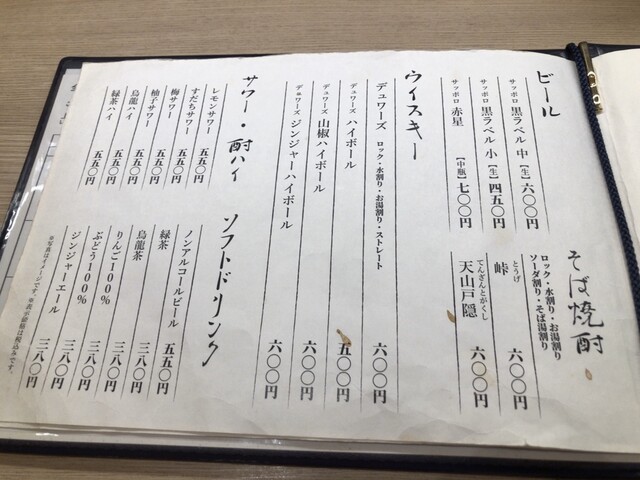 ビール
サッポロ 黒ラベル 中 【生】 六〇〇円
サッポロ 黒ラベル 小 【生】 四五〇円
サッポロ 赤星 【中瓶】 七〇〇円
そば焼酎
ロック・水割り・お湯割り
ソーダ割り・そば湯割り
とうげ
峠 六〇〇円
てんざんとがくし
天山戸隠 六〇〇円
ウイスキー
デュワーズ ロック・水割り・お湯割り・ストレート 六〇〇円
デュワーズ ハイボール 五〇〇円
デュワーズ 山椒ハイボール 六〇〇円
デュワーズ ジンジャーハイボール 六〇〇円
サワー・酎ハイ
レモンサワー 五五〇円
すだちサワー 五五〇円
梅サワー 五五〇円
柚子サワー 五五〇円
烏龍ハイ 五五〇円
緑茶ハイ 五五〇円
ソフトドリンク
ノンアルコールビール 五五〇円
緑茶 三八〇円
烏龍茶 三八〇円
りんご100% 三八〇円
ぶどう100% 三八〇円
ジンジャーエール 三八〇円
※写真はイメージです。※表示価格は税込みです。